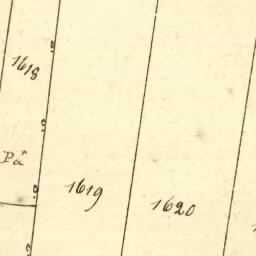 1618
1619
1620